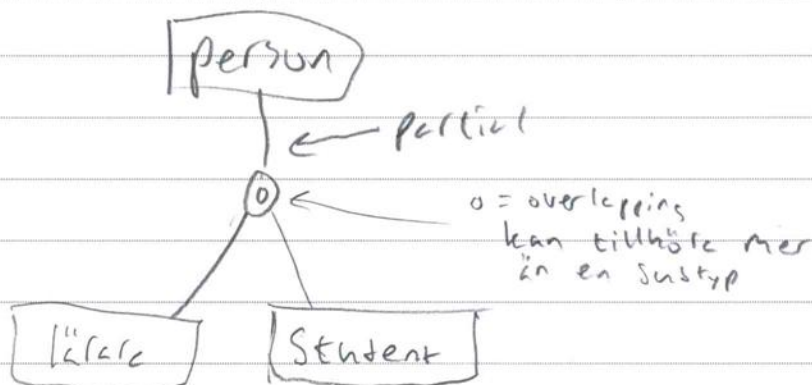 person
partial
o
o = overlapping
kan tillhöra mer
än en subtyp
lärare
Student